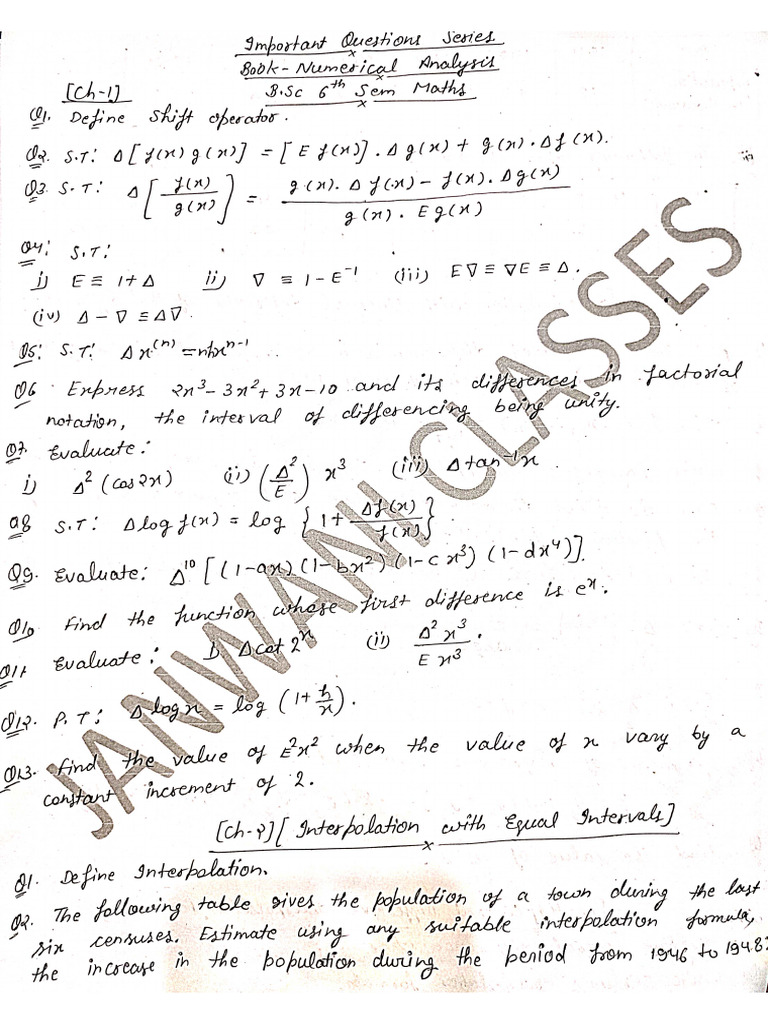 Important Questions Series
Book - Numerical Analysis
[Ch-1] B.Sc 6th Sem Maths
Q1. Define Shift operator.
Q2. S.T: Δ[f(x) g(x)] = [E f(x)] . Δg(x) + g(x) . Δf(x).
Q3. S.T: Δ[f(x)/g(x)] = (g(x). Δ f(x) - f(x). Δg(x))/(g(x). E g(x))
Q4: S.T:
i) E ≡ 1+Δ ii) ∇ ≡ 1-E⁻¹ (iii) E∇ ≡ ∇E ≡ Δ.
(iv) Δ - ∇ ≡ Δ∇
Q5: S.T: Δx⁽ⁿ⁾ = nhxⁿ⁻¹
Q6 Express 2x³-3x²+3x-10 and its differences in factorial
notation, the interval of differencing being unity.
Q7. Evaluate:
i) Δ² (cos2x) (ii) (Δ²/E) x³ (iii) Δtan⁻¹x
Q8 S.T: Δlog f(x) = log {1+ Δf(x)/f(x)}
Q9. Evaluate: Δ¹⁰ [(1-ax) (1-bx²) (1-cx³) (1-dx⁴)].
Q10 Find the function whose first difference is eˣ.
Q11 Evaluate: i) Δcot 2ˣ (ii) Δ²x³/Ex³.
Q12. P.T: Δlogx = log (1+ h/x).
Q13. Find the value of E²x² when the value of x vary by a
constant increment of 2.
[Ch-2] [Interpolation with Equal Intervals]
Q1. Define Interpolation.
Q2. The following table gives the population of a town during the last
six censuses. Estimate using any suitable interpolation formula,
the increase in the population during the period from 1946 to 1948:
JANWANI CLASSES